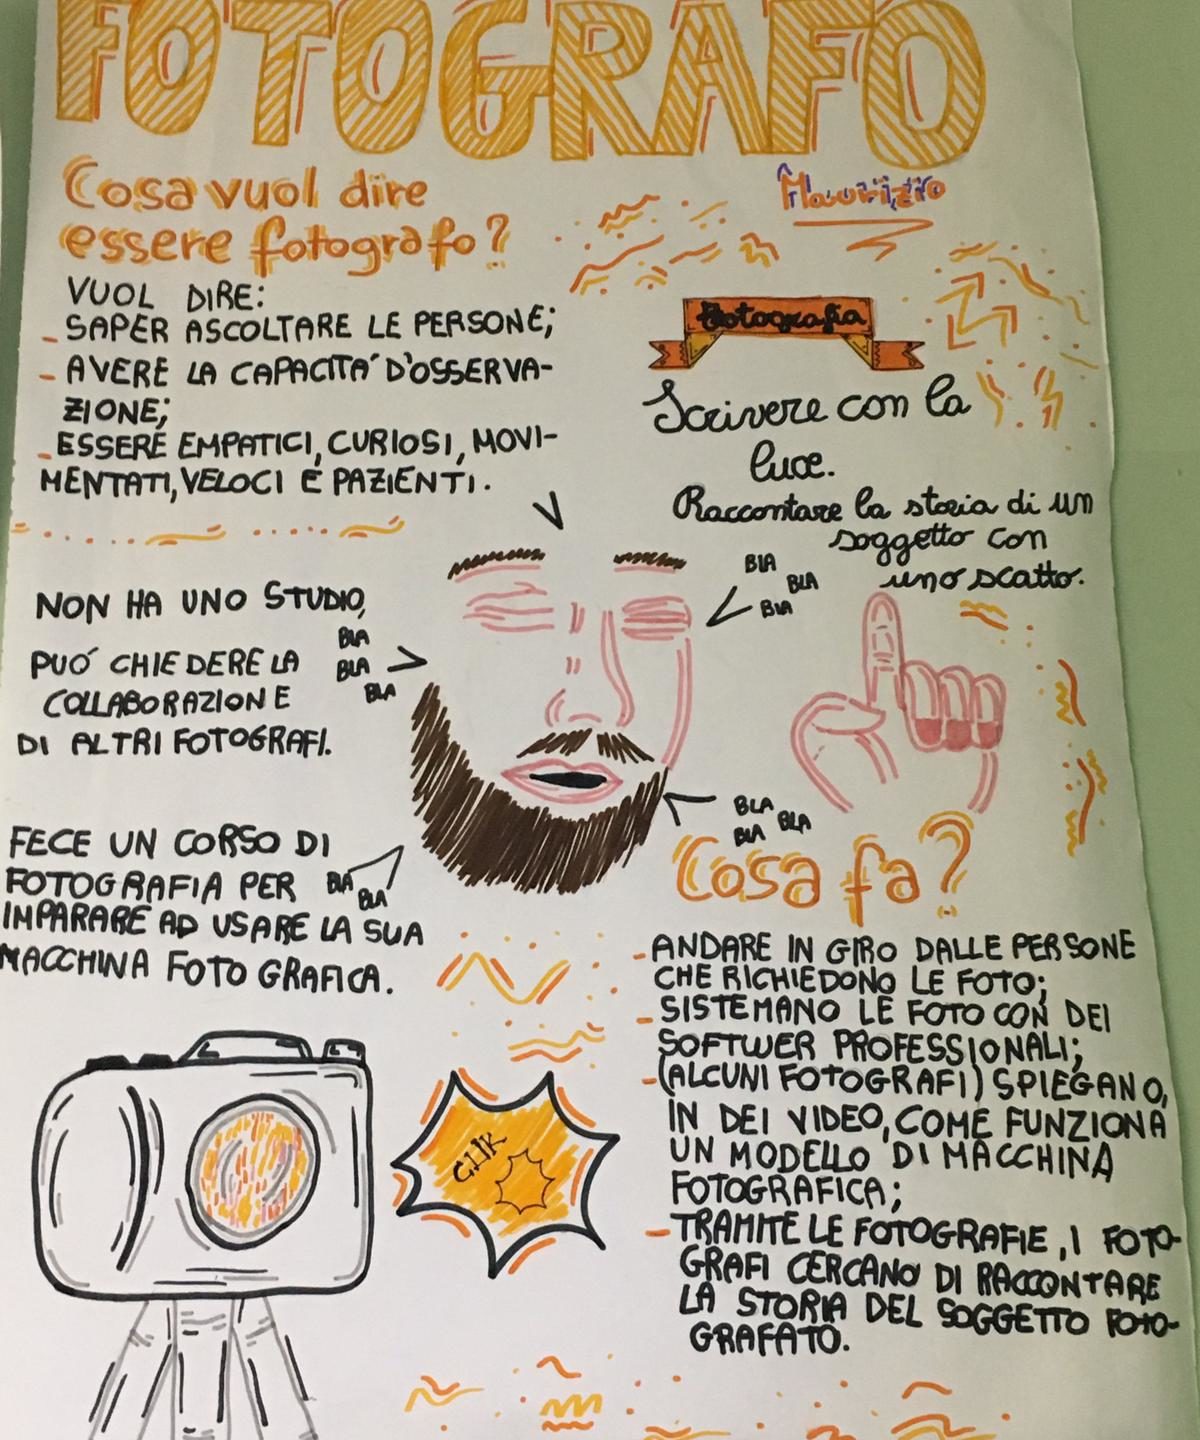 FOTOGRAFO
Cosa vuol dire
essere fotografo?
Maurizio
VUOL DIRE:
- SAPER ASCOLTARE LE PERSONE;
- AVERE LA CAPACITA' D'OSSERVA-
ZIONE;
- ESSERE EMPATICI, CURIOSI, MOVI-
MENTATI, VELOCI E PAZIENTI.
Fotografia
Scrivere con la
luce.
Raccontare la storia di un
soggetto con
uno scatto.
NON HA UNO STUDIO,
PUO' CHIEDERE LA
COLLABORAZIONE
DI ALTRI FOTOGRAFI.
BLA
BLA
BLA
BLA
BLA
BLA
FECE UN CORSO DI
FOTOGRAFIA PER
IMPARARE AD USARE LA SUA
MACCHINA FOTOGRAFICA.
BLA
BLA
BLA
BLA BLA
Cosa fa?
- ANDARE IN GIRO DALLE PERSONE
CHE RICHIEDONO LE FOTO;
- SISTEMANO LE FOTO CON DEI
SOFTWER PROFESSIONALI;
- (ALCUNI FOTOGRAFI) SPIEGANO,
IN DEI VIDEO, COME FUNZIONA
UN MODELLO DI MACCHINA
FOTOGRAFICA;
- TRAMITE LE FOTOGRAFIE, I FOTO-
GRAFI CERCANO DI RACCONTARE
LA STORIA DEL SOGGETTO FOTO-
GRAFATO.
CLIK